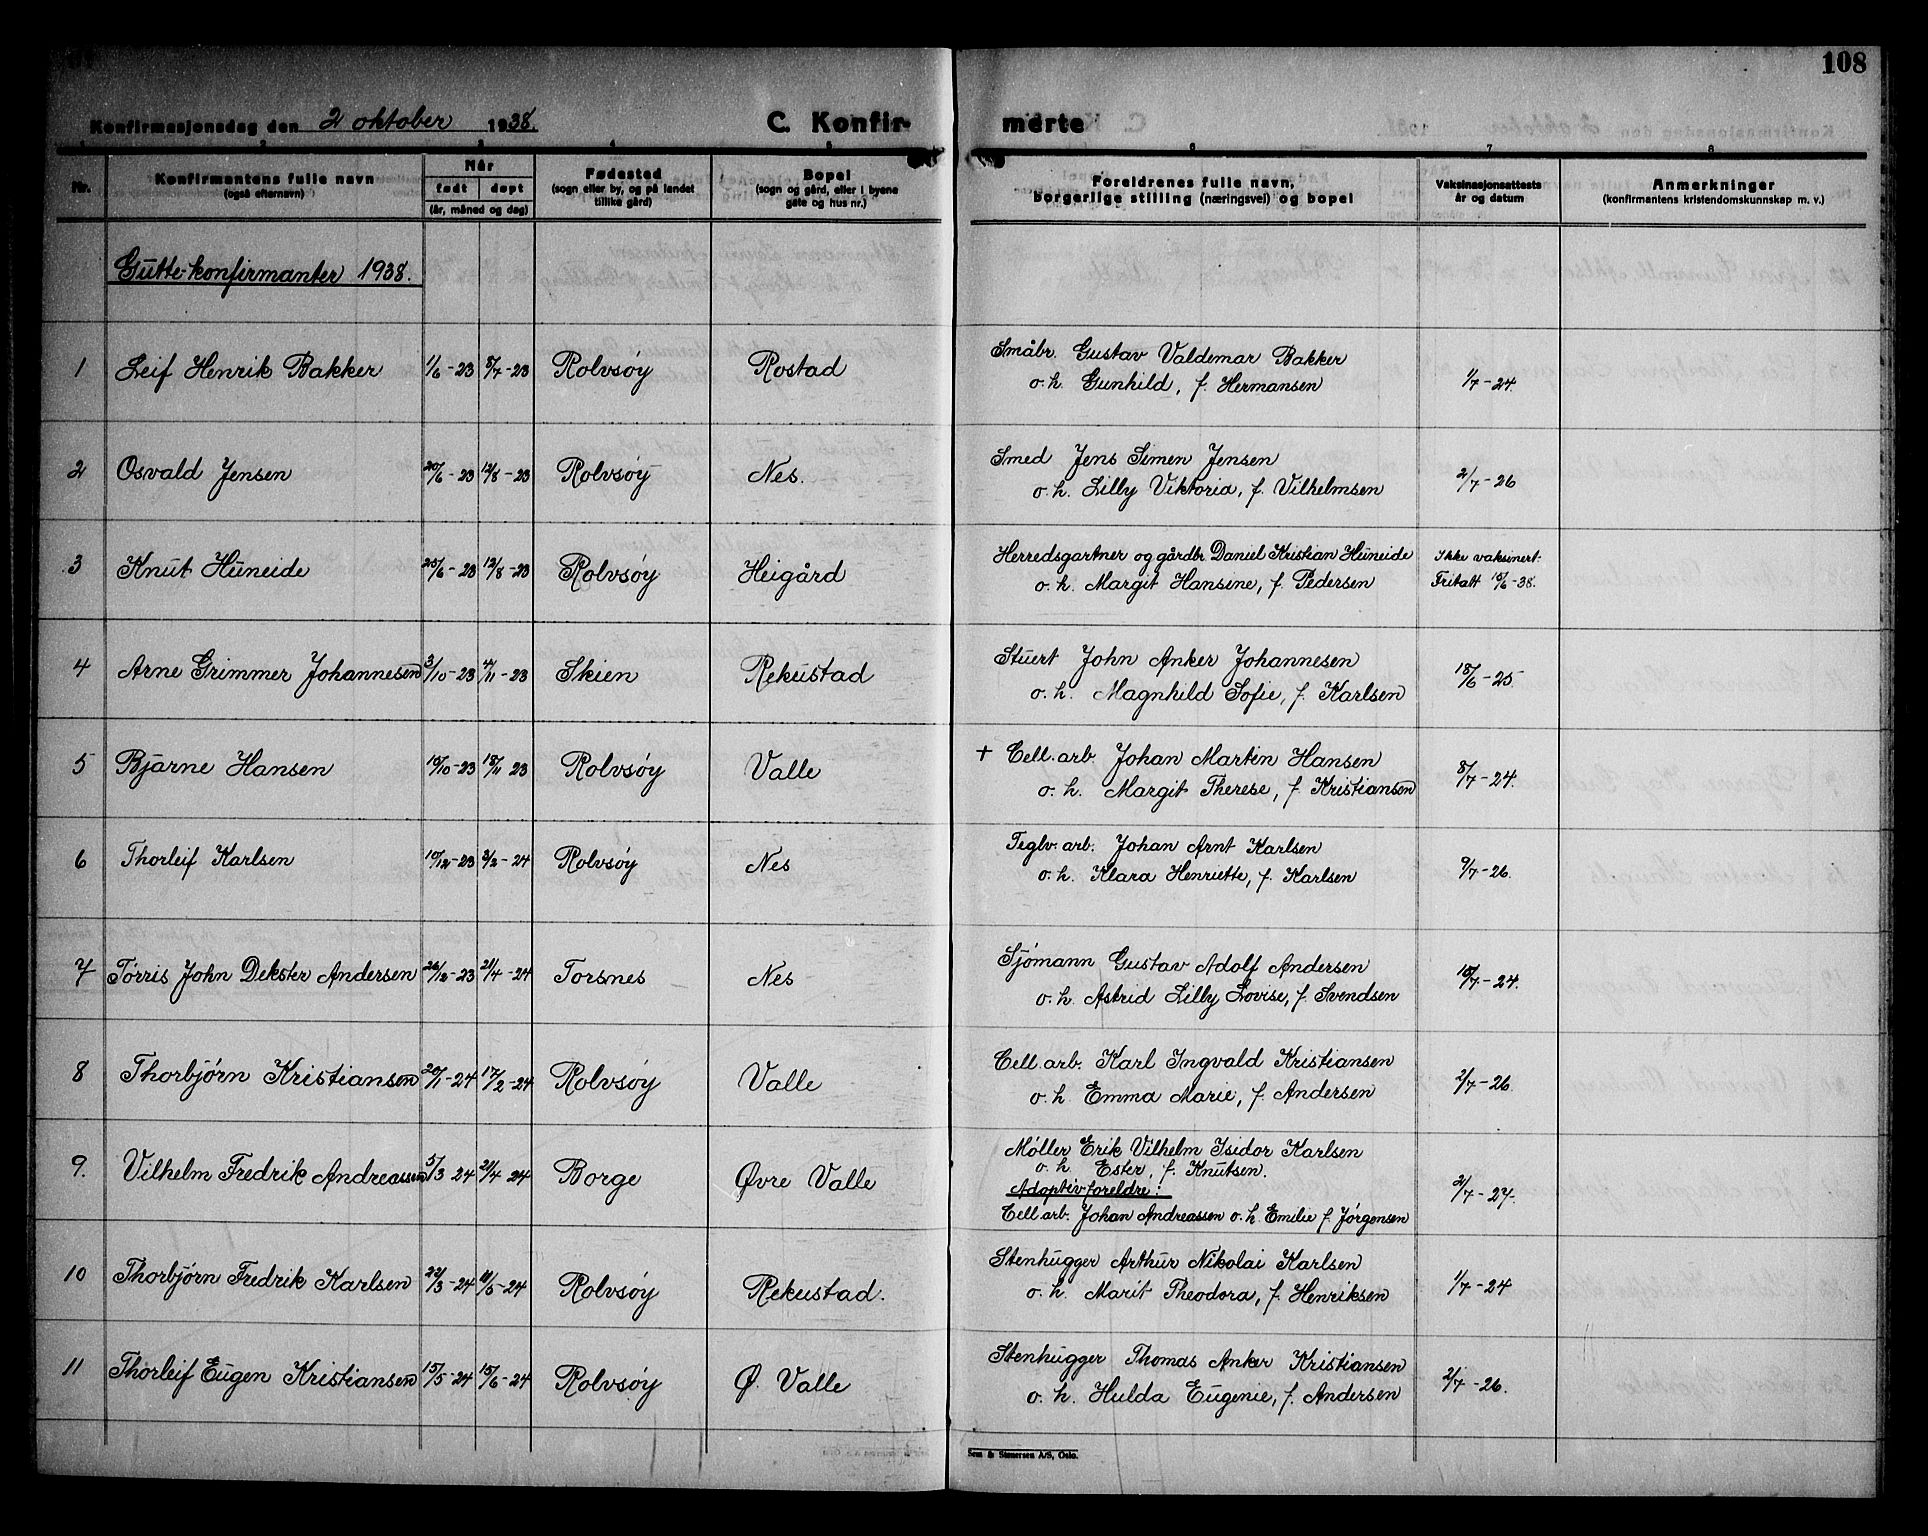 108
Konfirmasjonsdag den 2 oktober 1938.
C. Konfirmerte
1 2 3 4 5 6 7 8
Nr. | Konfirmantens fulle navn (også efternavn) | Når født | døpt (år, måned og dag) | Fødested (sogn eller by, og på landet tillike gård) | Bopel (sogn og gård, eller i byene gate og hus nr.) | Foreldrenes fulle navn, borgerlige stilling (næringsvei) og bopel | Vaksinasjonsattests år og datum | Anmerkninger (konfirmantens kristendomskunnskap m. v.)
Gutte-konfirmanter 1938.
1 Leif Henrik Bakker 1/6-23 8/7-23 Rolvsøy Rostad Småbr. Gustav Valdemar Bakker
o. h. Gunhild, f. Hermansen 1/7-24.
2 Osvald Jensen 20/6-23 12/8-23 Rolvsøy Nes. Smed Jens Simen Jensen
o. h. Lilly Viktoria, f. Vilhelmsen 2/7-26
3 Knut Huneide 25/6-23 12/8-23 Rolvsøy Heigård Herredsgartner og gårdbr. Daniel Kristian Huneide Ikke vaksinert.
o. h. Margit Hansene, f. Pedersen Fritatt 10/6-38.
4 Arne Grimmer Johannesen 3/10-23 4/11-23 Skien Rekustad Stuert John Anker Johannesen
o. h. Magnhild Sofie, f. Karlsen 18/6-25
5 Bjarne Hansen 10/10-23 18/11 23 Rolvsøy Valle + Cell. arb. Johan Martin Hansen
o. h. Margit Therese, f. Kristiansen 8/7-24.
6 Thorleif Karlsen 10/12-23 3/2-24 Rolvsøy Nes Teglv. arb. Johan Arnt Karlsen
o. h. Klara Henriette, f. Karlsen 9/7-26.
7 Tørris John Dekster Andersen 26/12-23 21/4-24 Torsnes Nes Sjømann Gustav Adolf Andersen
o. h. Astrid Lilly Lovise, f. Svendsen 10/7-24.
8 Thorbjørn Kristiansen 20/1-24 17/2-24 Rolvsøy Valle Cell. arb. Karl Ingvald Kristiansen
o. h. Emma Marie, f. Andersen 2/7-26
9. Vilhelm Fredrik Andreassen 5/3 24 21/4 24 Borge Øvre Valle Møller Erik Vilhelm Isidor Karlsen
o. h. Ester, f. Knutsen.
Adoptivforeldre: 2/7-27.
Cell. arb. Johan Andreassen o. h. Emilie f. Jørgensen
10 Thorbjørn Fredrik Karlsen 22/3-24 11/5-24 Rolvsøy Rekustad. Stenhugger Arthur Nikolai Karlsen
o. h. Marit Theodora, f. Henriksen 1/7-24
11 Thorleif Eugen Kristiansen 15/5-24 15/6-24 Rolvsøy Ø. Valle Stenhugger Thomas Anker Kristiansen
o. h. Hulda Eugenie, f. Andersen 2/7-26.
Sem & Stenersen A/S, Oslo.